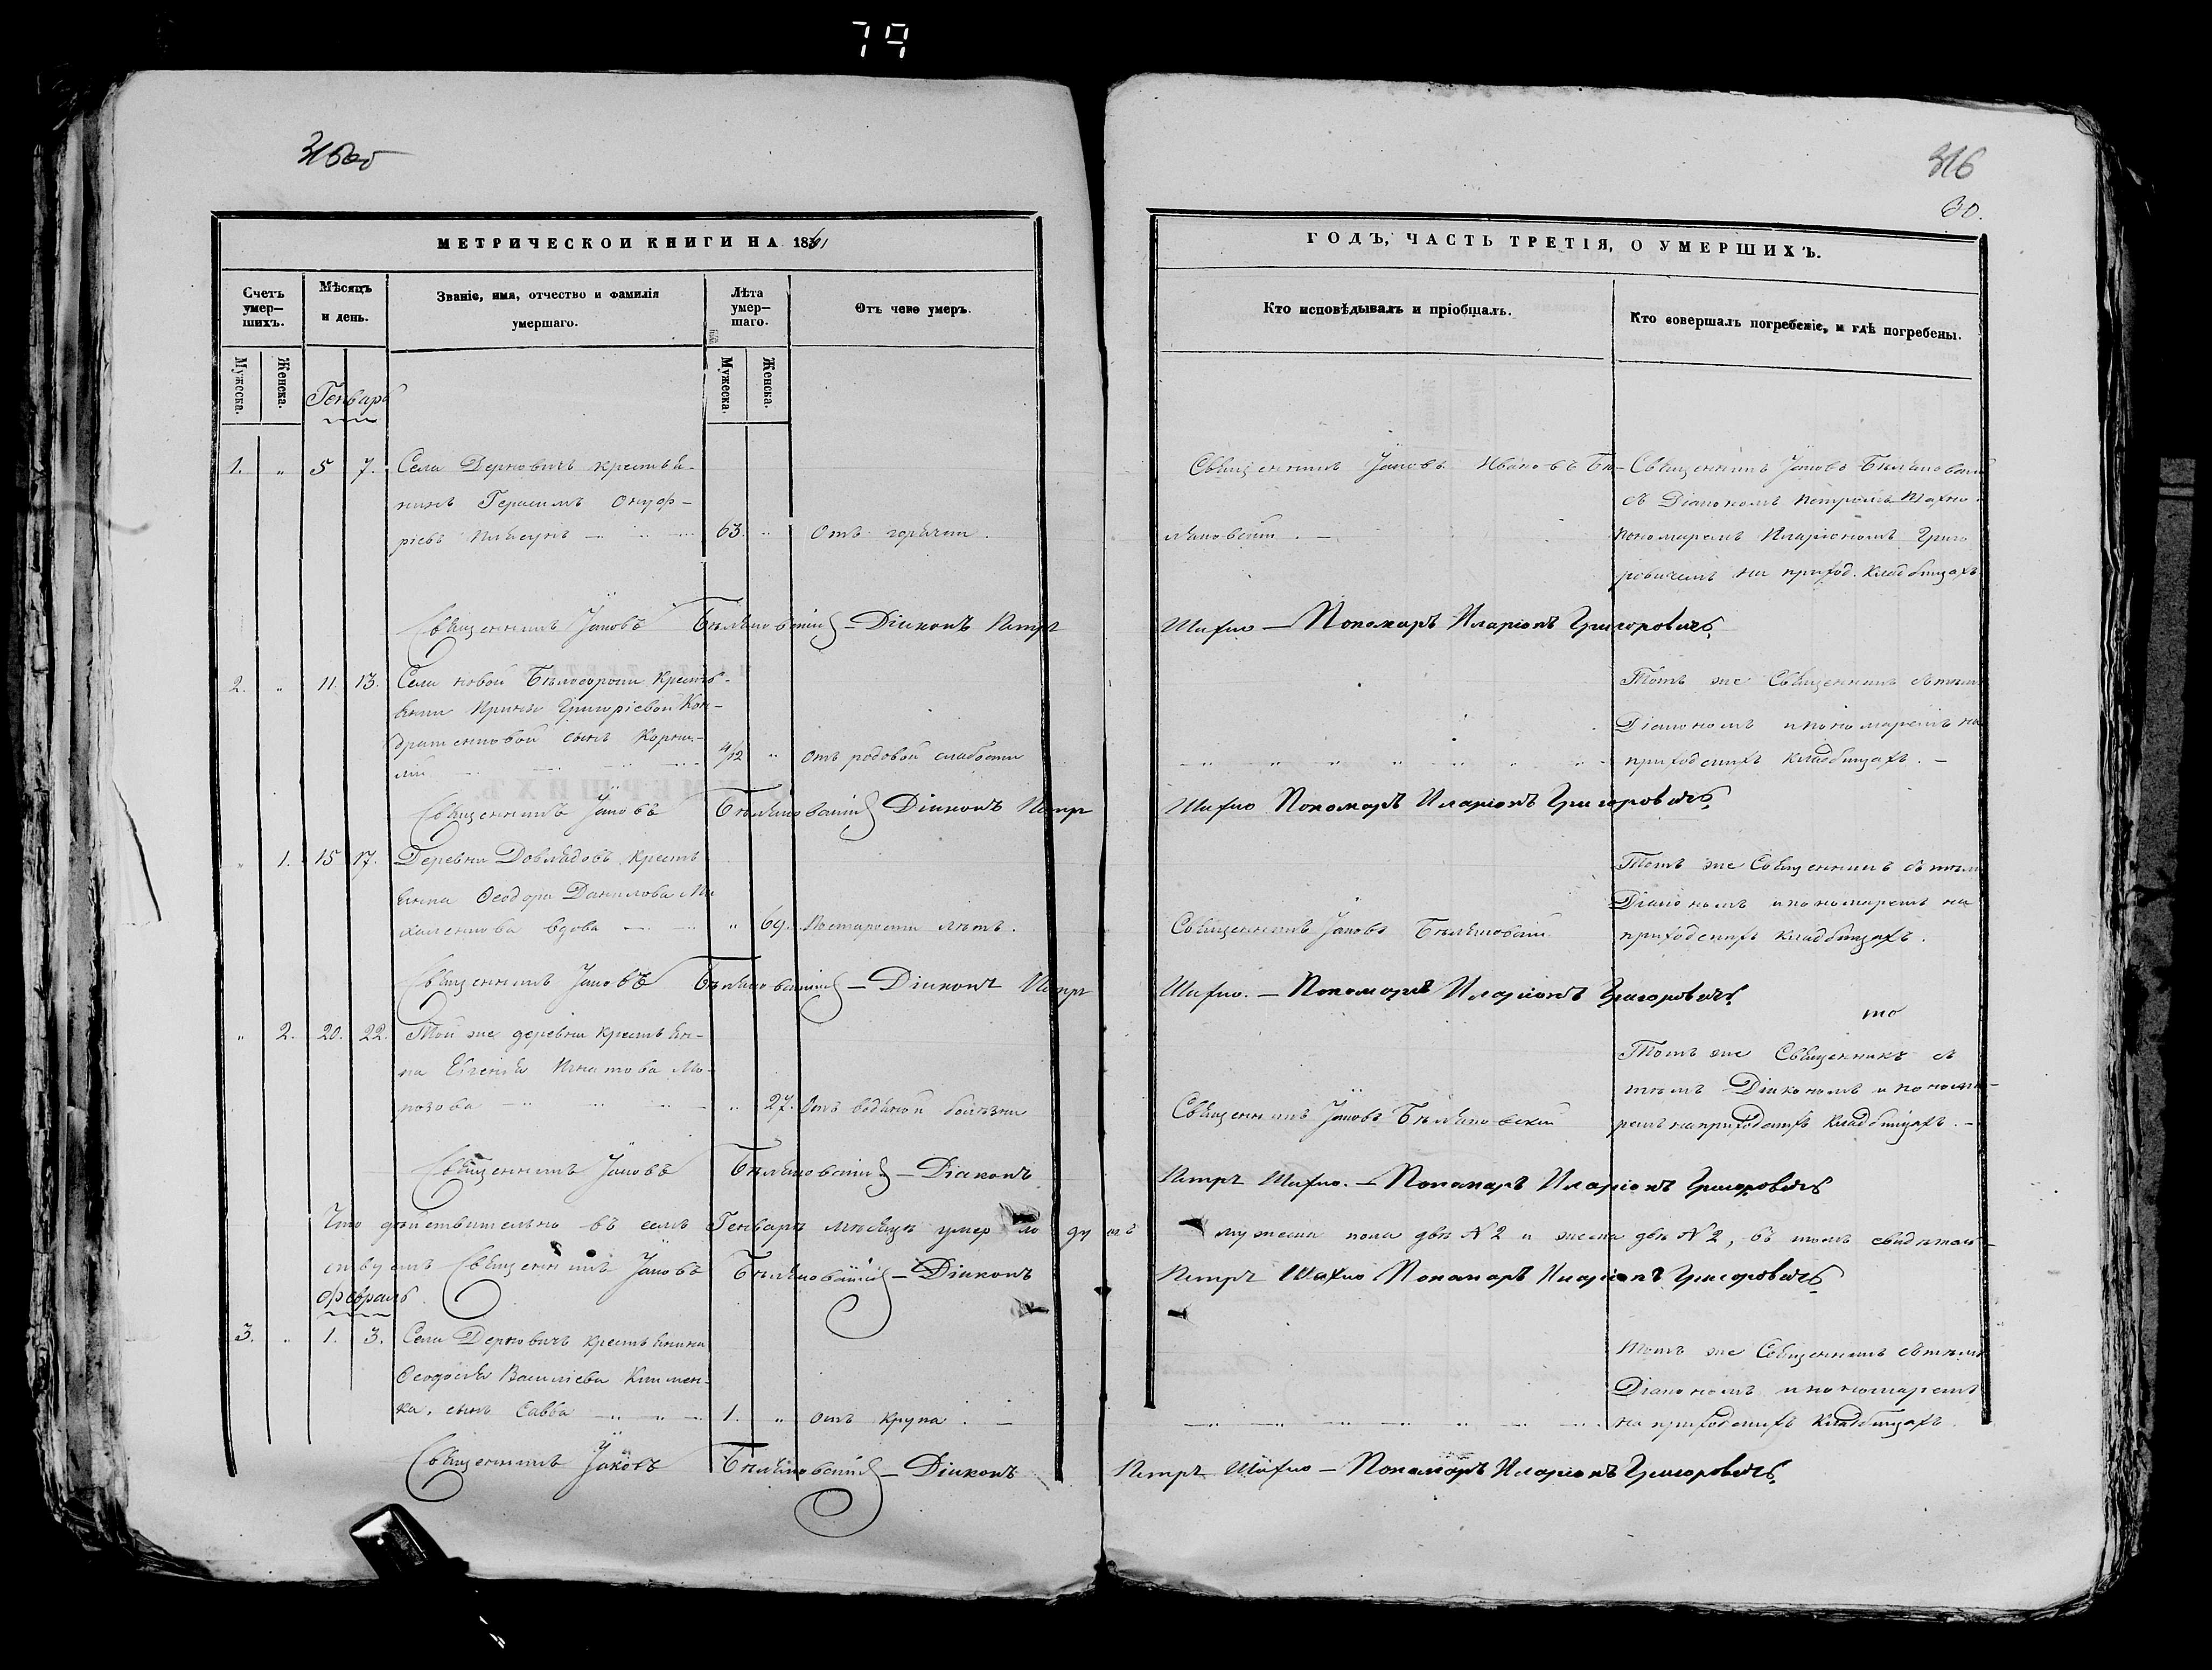 79
315об
316
30.
МЕТРИЧЕСКОЙ КНИГИ НА 1861
ГОДЪ, ЧАСТЬ ТРЕТІЯ, О УМЕРШИХЪ.
Счетъ умер—шихъ.
Мѣсяцъ и день.
Званіе, имя, отчество и фамилія умершаго.
Лѣта умер—шаго.
Отъ чего умеръ.
Кто исповѣдывалъ и пріобщалъ.
Кто совершалъ погребеніе, и гдѣ погребены.
Мужеска.
Женска.
Мужеска.
Женска.
Генварь
1. " 5 7. Села Дерновичъ крестья-
нинъ Герасимъ Онуф-
ріевъ 63. " Отъ горячки.
Священникъ Іаковъ Ивановъ Бѣ-
ляновскій. —
Священникъ Іаковъ Бѣляновскій
съ Діакономъ Петромъ Махно
пономаремъ Иларіономъ Григо
ровичемъ на приход. кладбищахъ
Священникъ Іаковъ Бѣляновскій — Діаконъ Петръ
Шахно — Пономарь Иларіонъ Григоровичъ
2. " 11. 13. Села новой Бѣлосороки кресть-
янки Ирины Григоріевой Кон-
дратенковой сынъ Корни-
лій 4/12 " отъ родовой слабости
Тотъ же Священникъ съ тѣмъ
Діакономъ и пономаремъ на
приходскихъ кладбищахъ. —
Священникъ Іаковъ Бѣляновскій Діаконъ Петръ
Шахно Пономарь Иларіонъ Григоровичъ
" 1. 15 17. Деревни Довлядовъ кресть
янка Ѳеодора Данилова Ми
халенкова вдова " 69. По старости лѣтъ.
Священникъ Іаковъ Бѣляновскій
Тотъ же Священникъ съ тѣмъ
Діакономъ и пономаремъ на
приходскихъ кладбищахъ.
Священникъ Іаковъ Бѣляновскій — Діаконъ Петръ
Шахно. — Пономарь Иларіонъ Григоровичъ
то
" 2. 20. 22. Той же деревни крестьян-
ка Евгенія Игнатова Мо-
розова " 27. Отъ водяной болѣзни
Священникъ Іаковъ Бѣляновскій
Тотъ же Священникъ съ
тѣмъ Діакономъ и понома-
ремъ на приходскихъ кладбищахъ. —
Священникъ Іаковъ Бѣляновскій — Діаконъ
Петръ Шахно. — Пономарь Иларіонъ Григоровичъ
Что дѣйствительно въ семъ Генварѣ мѣсяцѣ умерло душъ мужеска пола двѣ N 2 и женска двѣ N 2, въ томъ свидѣтель-
ствуемъ Священникъ Іаковъ Бѣляновскій — Діаконъ Петръ Шахно Пономарь Иларіонъ Григоровичъ
Февраль
3. " 1. 3. Села Дерновичъ крестьянина
Ѳеодосія Василіева Климен-
ка, сынъ Савва 1. " отъ крупа. —
Тотъ же Священникъ съ тѣмъ
Діакономъ и пономаремъ
на приходскихъ кладбищахъ.
Священникъ Іаковъ Бѣляновскій — Діаконъ
Петръ Шахно — Пономарь Иларіонъ Григоровичъ